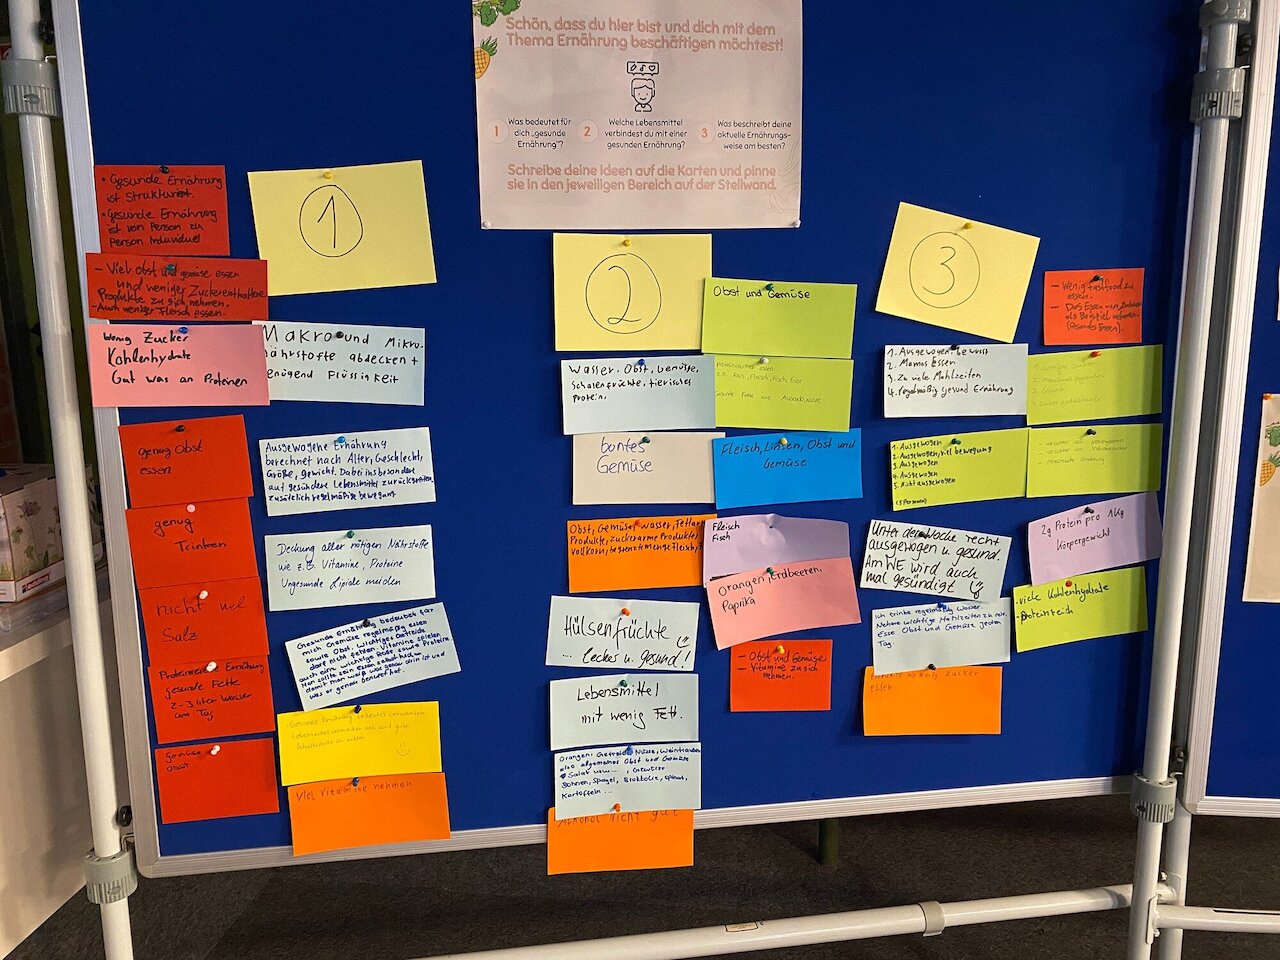 Schön, dass du hier bist und dich mit dem
Thema Ernährung beschäftigen möchtest!
1 Was bedeutet für
dich „gesunde
Ernährung"?
2 Welche Lebensmittel
verbindest du mit einer
gesunden Ernährung?
3 Was beschreibt deine
aktuelle Ernährungs-
weise am besten?
Schreibe deine Ideen auf die Karten und pinne
sie in den jeweiligen Bereich auf der Stellwand.
1
• Gesunde Ernährung
ist Strukturiert.
• Gesunde Ernährung
ist von Person zu
Person Individuell
- Viel obst und gemüse essen
und weniger Zuckerenthaltene
Produkte zu sich nehmen.
- Auch weniger Fleisch essen.
Wenig Zucker
Kohlenhydrate
Gut was an Proteinen
genug Obst
essen
genug
Trinken
nicht viel
Salz
Proteinreiche Ernährung
gesunde Fette
2-3 liter Wasser
am Tag
gemüse
Obst
Makro und Mikro-
nährstoffe abdecken +
genügend Flüssigkeit
Ausgewogene Ernährung
berechnet nach Alter, Geschlecht,
Größe, gewicht. Dabei insbesondere
auf gesündere Lebensmittel zurückgreifen,
zusätzlich regelmäßige bewegung
Deckung aller nötigen Nährstoffe
wie z.B. Vitamine, Proteine
Ungesunde Lipide meiden
Gesunde Ernährung bedeutet für
mich Gemüse regelmäßig essen
sowie Obst. Wichtiges Getreide
darf nicht fehlen. Vitamine spielen
auch eine wichtige Rolle sowie Proteine.
Man sollte sein essen selbst kochen
damit man weiß was genau drin ist und
was er genau benötigt hat.
Gesunde Ernährung bedeutet verarbeitete
Lebensmittel vermeiden und auf gute
Inhaltsstoffe zu achten
Viel Vitamine nehmen
2
Wasser, Obst, Gemüse,
Schalenfrüchte, tierisches
Protein.
buntes
Gemüse
Obst, Gemüse, wasser, fettarme
Produkte, zuckerarme Produkte,
Vollkorn, begrenzte menge Fleisch,
Hülsenfrüchte
... lecker u. gesund!
Lebensmittel
mit wenig Fett.
Orangen, Getreide, Nüsse, Weintrauben
also allgemeines Obst und Gemüse
Salat usw...., Gewürze
Bohnen, Spargel, Brokkolie, spinat,
Kartoffeln...
Alkohol nicht gut
Obst und Gemüse
Proteinreiches essen
z.B. Reis, Fleisch, Fisch, Eier
Gesunde Fette wie Avocado, Nüsse
Fleisch, Linsen, Obst und
Gemüse
Fleisch
Fisch
Orangen, Erdbeeren,
Paprika
- Obst und Gemüse
- Vitamine zu sich
nehmen.
3
- Wenig fastfood zu
essen.
- Das Essen von Zuhause
als Beispiel nehmen.
(Gesundes Essen).
1. Ausgewogen, bewusst
2. Mamas Essen
3. Zu viele Mahlzeiten
4. regelmäßig gesund Ernährung
1. Ausgewogen
2. Ausgewogen, viel bewegung
3. Ausgewogen
4. Ausgewogen
5. Nicht ausgewogen
(5 Personen)
Unter der Woche recht
ausgewogen u. gesund.
Am WE wird auch
mal gesündigt
Ich trinke regelmäßig Wasser.
Nehme wichtige Mahlzeiten zu mir.
Esse Obst und Gemüse jeden
Tag.
zucker
essen
2g Protein pro 1Kg
Körpergewicht
- viele Kohlenhydrate
- Proteinreich